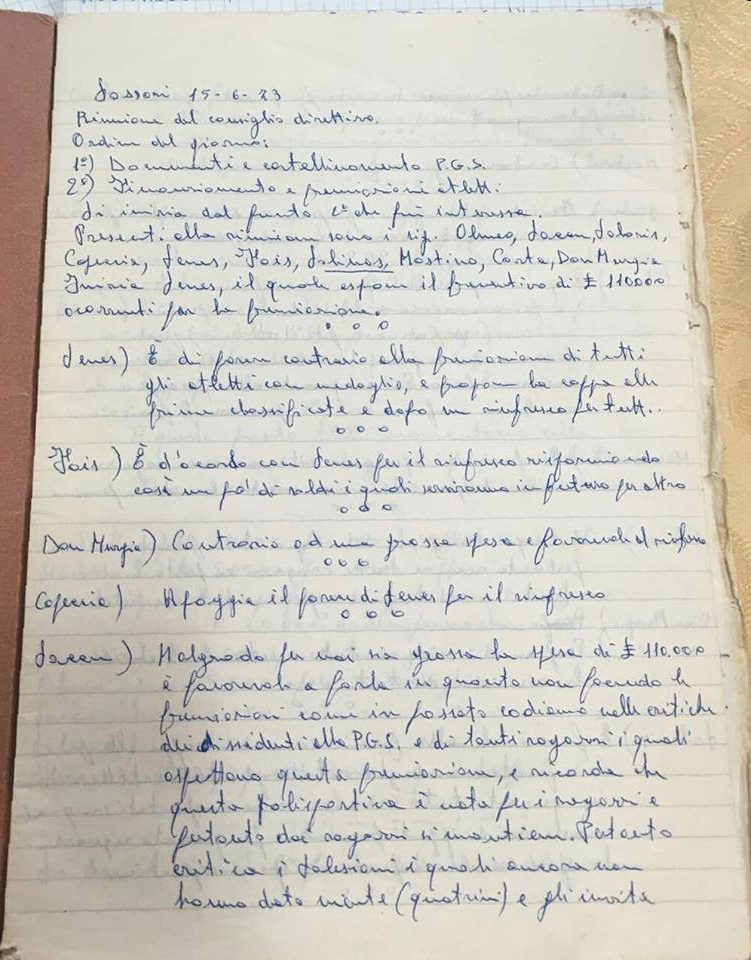 Sassari 15-6-73
Riunione del consiglio direttivo.
Ordine del giorno:
1º) Documenti e cartellinamento P.G.S.
2º) Finanziamento e premiazioni atleti.
Si inizia dal punto 2º che più interessa.
Presenti alla riunione sono i sig. Olmeo, Saccu, Solaris,
Copecia, Senes, Fois, Salines, Mastino, Conta, Don Murgia
Inizia Senes, il quale espone il preventivo di £ 110000
ocorrenti per la premiazione.
Senes) È di parere contrario alla premiazione di tutti
gli atletti con medaglie, e propone la coppa alle
prime classificate e dopo un rinfresco per tutti..
Fois) È d'acordo con Senes per il rinfresco risparmiando
così un pó di soldi i quali serviranno in futuro per altro
Don Murgia) Contrario ad una grossa spesa e favorevole al rinfresco
Copecia) Apoggia il parere di Senes per il rinfresco
Saccu) Malgrado per noi sia grossa la spesa di £ 110.000
è favorevole a farla in quanto non facendo le
premiazioni come in passato cadiamo nelle critiche
dei dissidenti alla P.G.S. e di tanti ragazzi i quali
aspettano questa premiazione, e ricorda che
questa polisportiva è nata per i ragazzi e
pertanto dai ragazzi si mantiene. Pertanto
critica i Salesiani i quali ancora non
hanno dato niente (quatrini) e gli invita